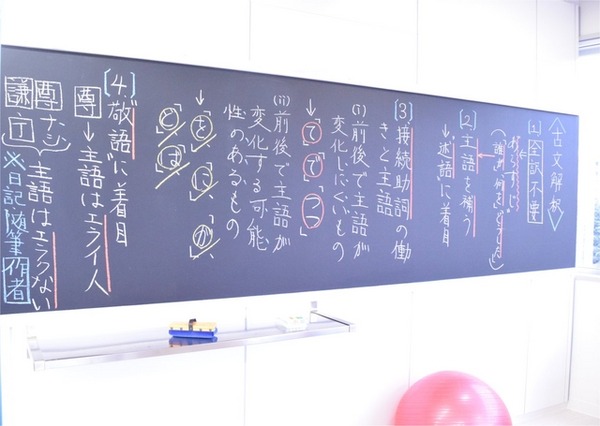 〈古文解析〉
[1]全訳不要
↓あらすじ。
(「誰が何をどうした」)
[2]主語を補う
→述語に着目
[3]接続助詞の働
きと主語
(i)前後で主語が
変化しにくいもの
↓
「て」「で」「つつ」
(ii)前後で主語が
変化する可能
性のあるもの
↓
「を」「に」「が」
「ど」「ば」
[4]敬語に着目
尊→主語はエライ人
尊なし
謙丁
主語はエラクない
※日記随筆作者